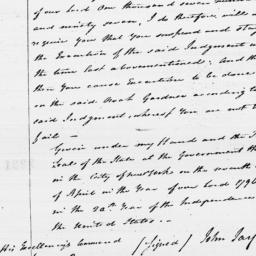 of our Lord One thousand seven
and ninety seven, I do therefore will
require You that You suspend and stay
the Execution of the said Judgement
the time last abovementioned, And
then You cause Execution to be done
on the said Noah Gardner according to
said Judgment, whereof You are not to
fail —
Given under my Hand and the
Seal of the State at the Government
in the City of New York on the seventh
of April in the Year of our Lord 1796
in the 20th Year of the Independence
the United States. —
His Excellency's Command
(signed) John Jay